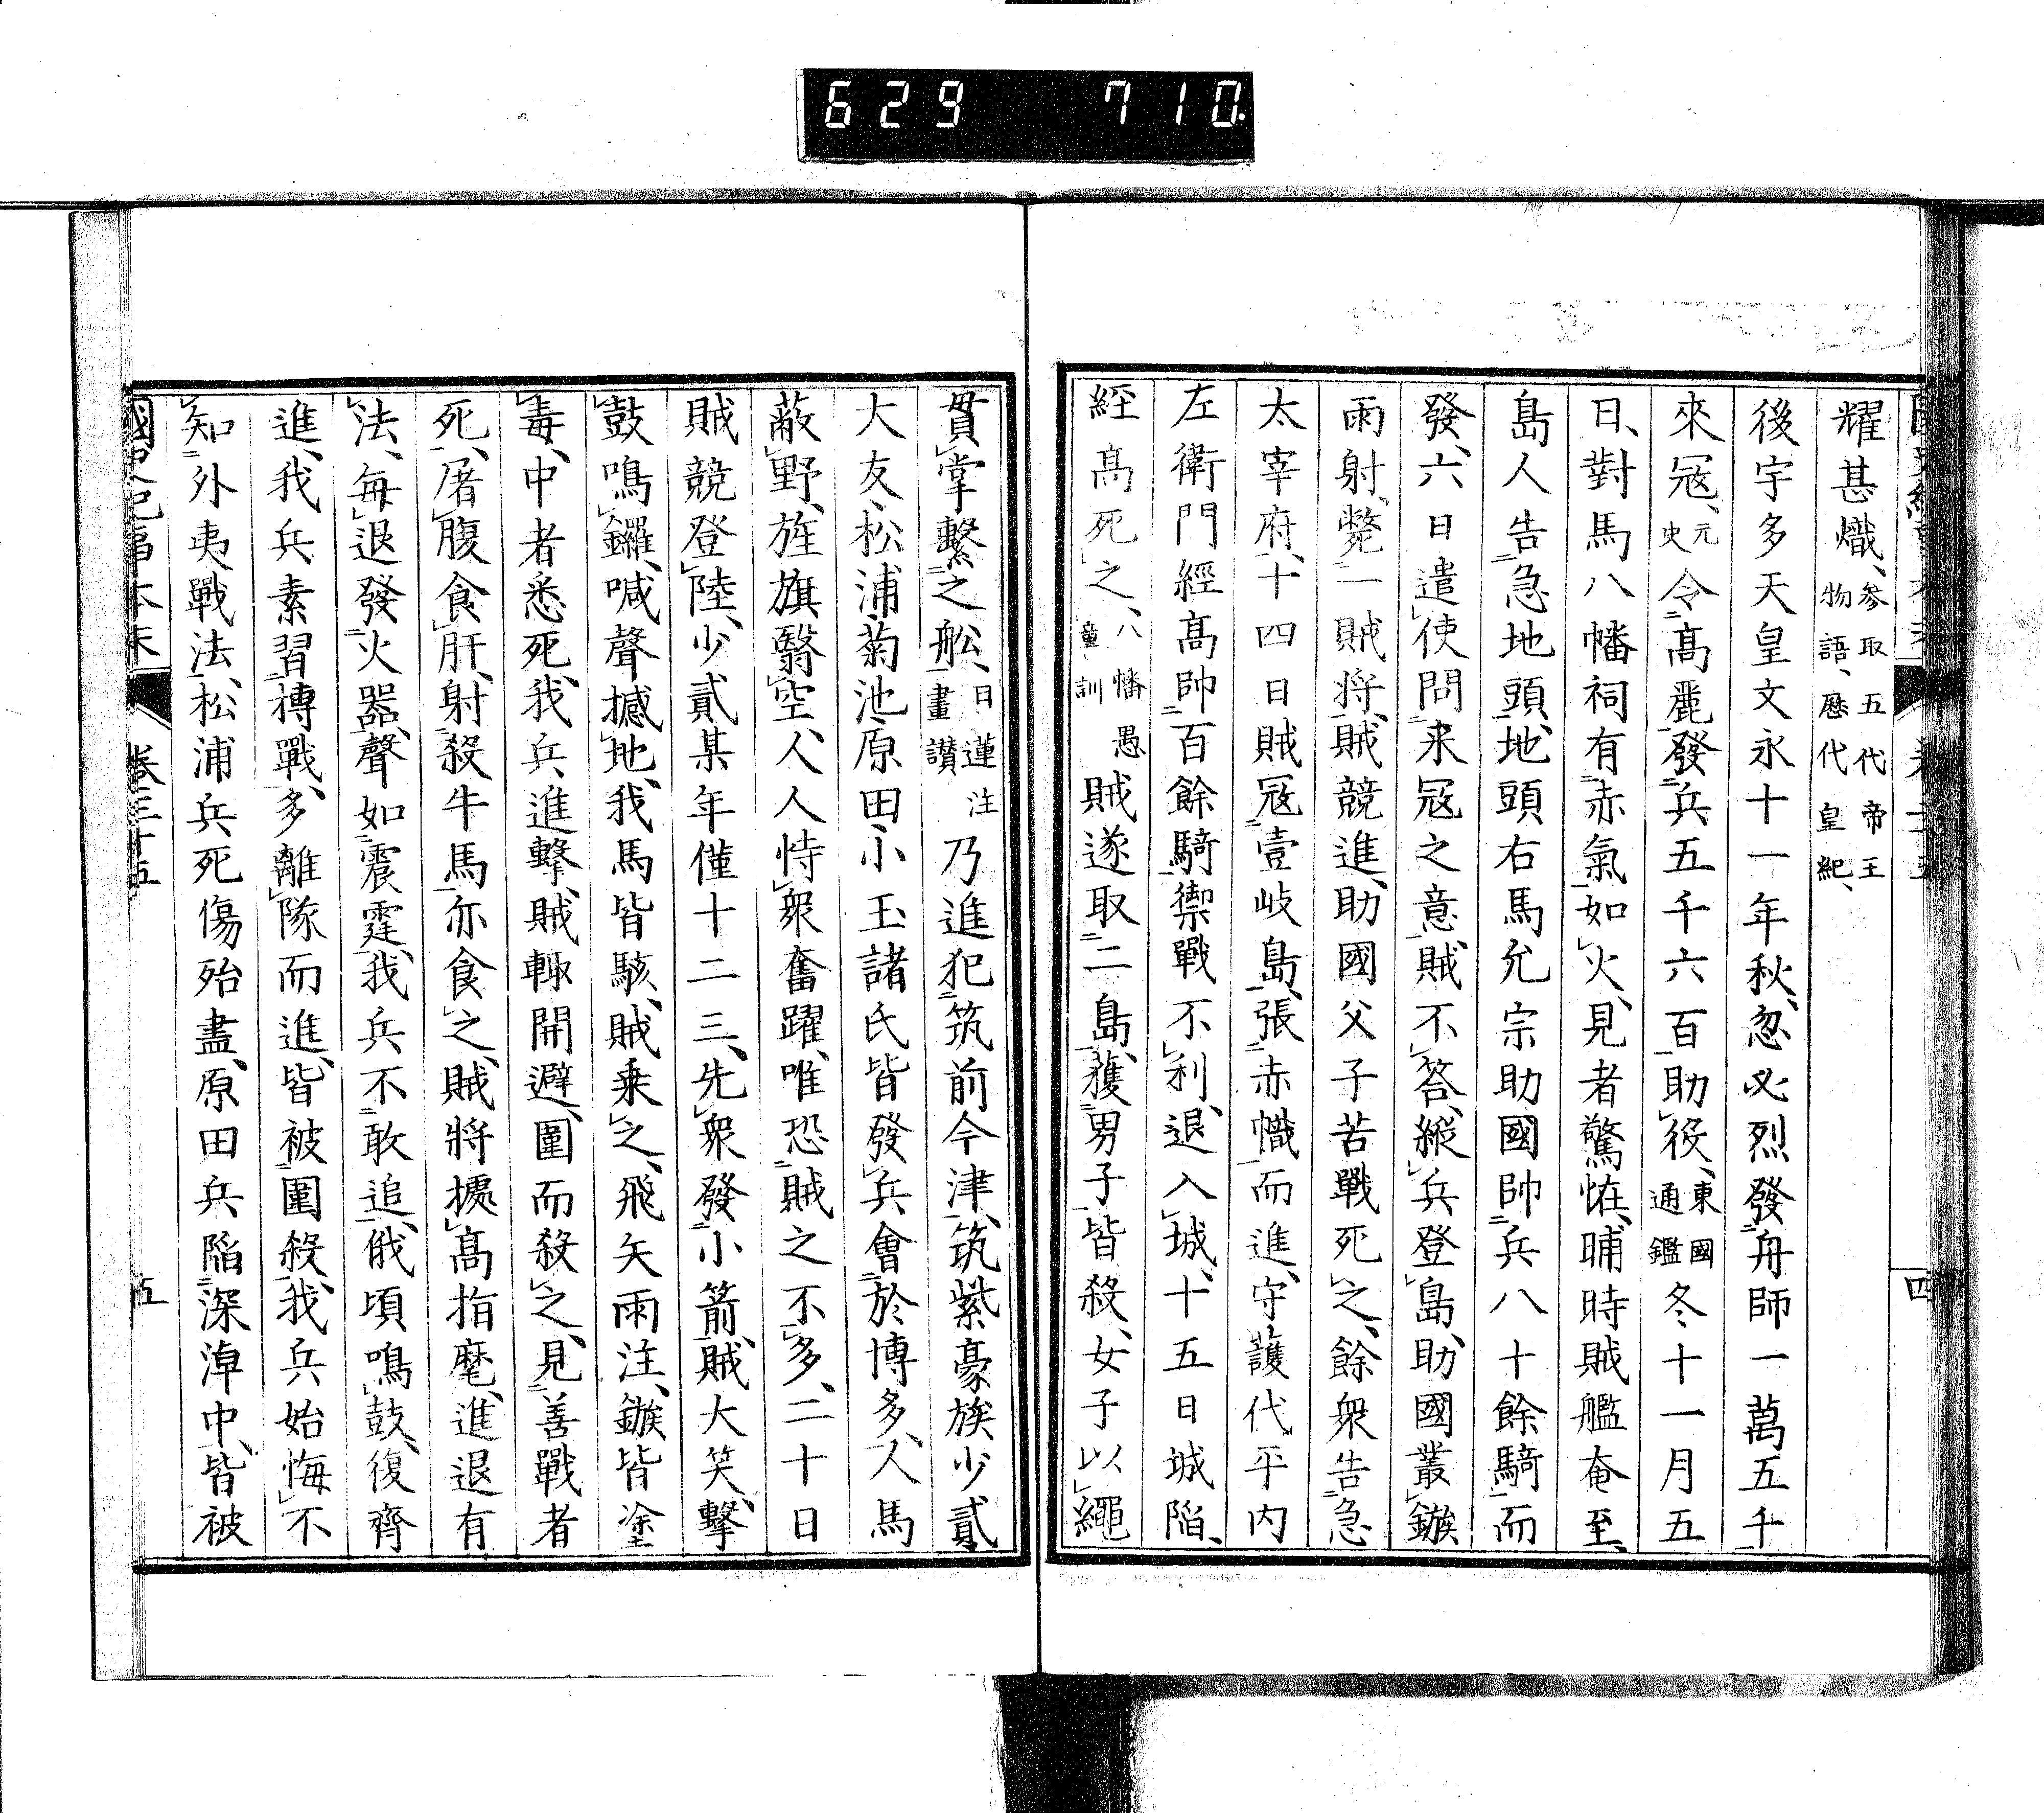 629 710
耀甚熾、參取五代帝王物語、歷代皇紀、
後宇多天皇文永十一年秋、忽必烈發舟師一萬五千
來寇、元史令高麗發兵五千六百助役、東國通鑑冬十一月五
日、對馬八幡祠有赤氣如火、見者驚恠、晡時賊艦奄至、
島人告急地頭、地頭右馬允宗助國帥兵八十餘騎而
發、六日遣使問来寇之意、賊不答、縱兵登島、助國叢鏃
雨射、斃一賊將、賊競進、助國父子苦戰死之、餘衆告急
太宰府、十四日賊寇壹岐島、張赤幟而進、守護代平内
左衛門經高帥百餘騎禦戰不利、退入城、十五日城陷、
經高死之、八幡愚童訓賊遂取二島、獲男子皆殺、女子以繩
貫掌繫之舩、日蓮注畫讃乃進犯筑前今津、筑紫豪族少貳
大友、松浦、菊池、原田、小玉諸氏皆發兵會於博多、人馬
蔽野、旌旗翳空、人人恃衆奮躍、唯恐賊之不多、二十日
賊競登陸、少貳某年僅十二三、先衆發小箭、賊大笑、擊
鼓鳴鑼、喊聲撼地、我馬皆駭、賊乗之、飛矢雨注、鏃皆塗
毒、中者悉死、我兵進擊、賊輙開避、圍而殺之、見善戰者
死、屠腹食肝、射殺牛馬、亦食之、賊將據高指麾、進退有
法、每退發火器、聲如震霆、我兵不敢追、俄頃鳴鼓、復齊
進、我兵素習搏戰、多離隊而進、皆被圍殺、我兵始悔不
知外夷戰法、松浦兵死傷殆盡、原田兵陷深淖中、皆被
國史紀事本末 卷三十五 五